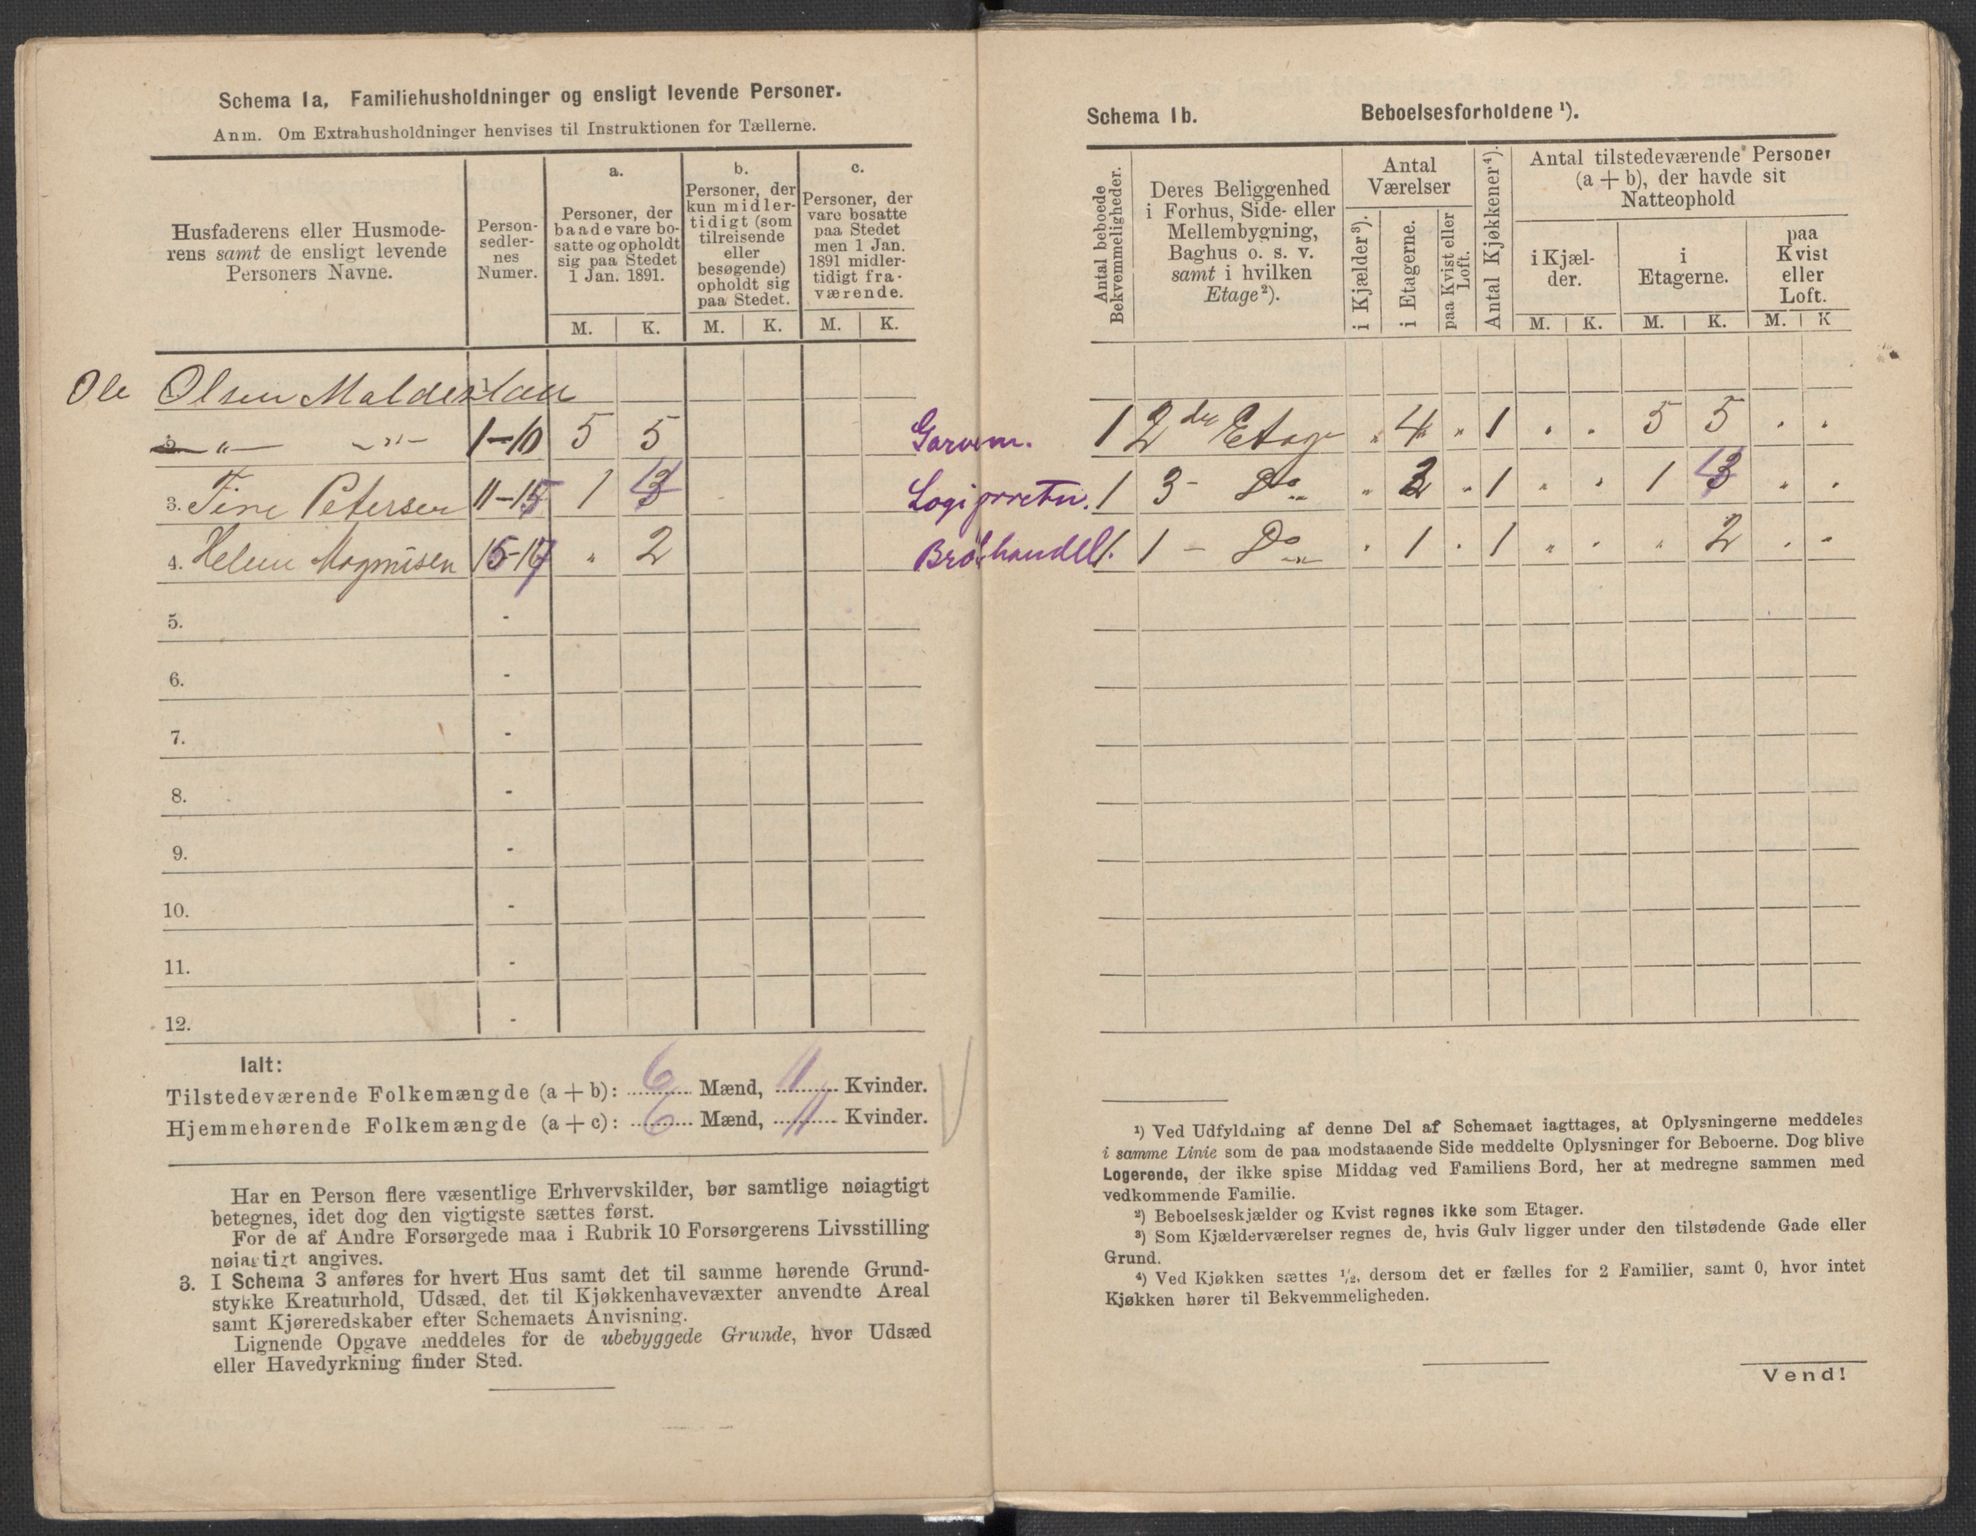 Schema 1a, Familiehusholdninger og ensligt levende Personer.
Anm. Om Extrahusholdninger henvises til Instruktionen for Tællerne.
Husfaderens eller Husmode-
rens samt de ensligt levende
Personers Navne.
Person-
sedler-
nes
Numer.
a.
Personer, der
baade vare bo-
satte og opholdt
sig paa Stedet
1 Jan. 1891.
b.
Personer, der
kun midler-
tidigt (som
tilreisende
eller
besøgende)
opholdt sig
paa Stedet.
c.
Personer, der
vare bosatte
paa Stedet
men 1 Jan.
1891 midler-
tidigt fra-
værende.
M. K. M. K. M. K.
Ole Olsen
„ „ 1-10 5 5
3. Tine Petersen 11-15 1 4
4. Helene Magnusen 16-17 „ 2
5. -
6. -
7. -
8. -
9. -
10. -
11. -
12. -
Ialt:
Tilstedeværende Folkemængde (a + b): 6 Mænd, 11 Kvinder.
Hjemmehørende Folkemængde (a + c): 6 Mænd, 11 Kvinder.
Har en Person flere væsentlige Erhvervskilder, bør samtlige nøiagtigt
betegnes, idet dog den vigtigste sættes først.
For de af Andre Forsørgede maa i Rubrik 10 Forsørgerens Livsstilling
nøiagtigt angives.
3. I Schema 3 anføres for hvert Hus samt det til samme hørende Grund-
stykke Kreaturhold, Udsæd, det til Kjøkkenhavevæxter anvendte Areal
samt Kjøreredskaber efter Schemaets Anvisning.
Lignende Opgave meddeles for de ubebyggede Grunde, hvor Udsæd
eller Havedyrkning finder Sted.
Schema 1b. Beboelsesforholdene ¹).
Antal beboede
Bekvemmeligheder.
Deres Beliggenhed
i Forhus, Side- eller
Mellembygning,
Baghus o. s. v.
samt i hvilken
Etage²).
Antal
Værelser
i Kjælder³).
i Etagerne.
paa Kvist eller
Loft.
Antal Kjøkkener⁴).
Antal tilstedeværende Personer
(a + b), der havde sit
Natteophold
i Kjæl-
der.
i
Etagerne.
paa
Kvist
eller
Loft.
M. K. M. K. M. K
Garvem. 1 2den Etage „ 4 „ 1 „ „ 5 5 „ „
1 3 - Do „ 2 „ 1 „ „ 1 4 „ „
Brödhandel. 1 1 - Do „ 1 „ 1 „ „ „ 2 „ „
¹) Ved Udfyldning af denne Del af Schemaet iagttages, at Oplysningerne meddeles
i samme Linie som de paa modstaaende Side meddelte Oplysninger for Beboerne. Dog blive
Logerende, der ikke spise Middag ved Familiens Bord, her at medregne sammen med
vedkommende Familie.
²) Beboelseskjælder og Kvist regnes ikke som Etager.
³) Som Kjælderværelser regnes de, hvis Gulv ligger under den tilstødende Gade eller
Grund.
⁴) Ved Kjøkken sættes ½, dersom det er fælles for 2 Familier, samt 0, hvor intet
Kjøkken hører til Bekvemmeligheden.
Vend!